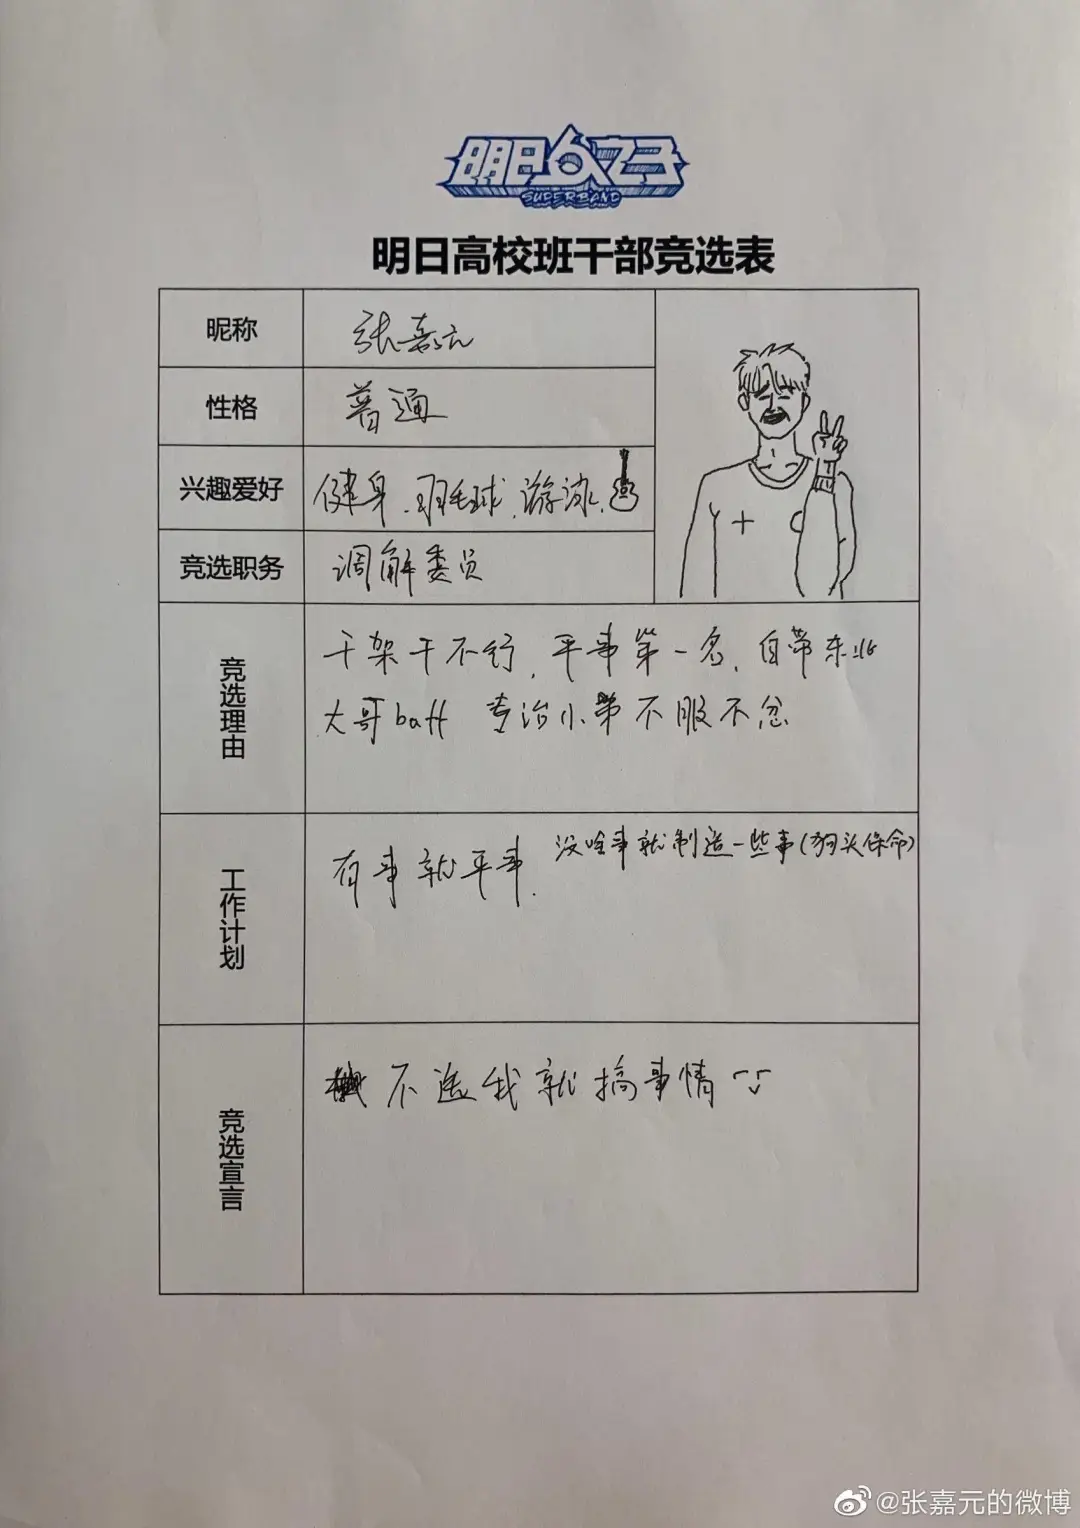 明日之子
SUPERBAND
明日高校班干部竞选表
昵称 张嘉元
性格 普通
兴趣爱好 健身、羽毛球、游泳、
竞选职务 调解委员
竞选理由 干架干不行，平事第一名，自带东北
大哥buff 专治小弟不服不忿
工作计划 有事就平事. 没啥事就制造一些事(狗头保命)
竞选宣言 不选我就搞事情
@张嘉元的微博